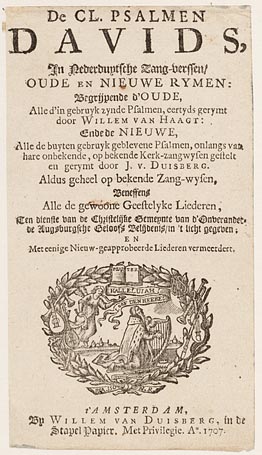 De CL. PSALMEN
DAVIDS,
In Nederduytsche Zang-verssen/
OUDE EN NIEUWE RYMEN:
Begrijpende d'OUDE,
Alle d'in gebruyk zynde Psalmen, eertyds gerymt
door WILLEM VAN HAAGT:
Ende de NIEUWE,
Alle de buyten gebruyk geblevene Psalmen, onlangs van
hare onbekende, op bekende Kerk-zangwysen gestelt
en gerymt door J. v. DUISBERG.
Aldus geheel op bekende Zang-wysen,
Beneffens
Alle de gewoone Geestelyke Liederen,
Ten dienste van de Christelijke Gemeynte van d'Onverander-
de Augsburgsche Geloofs Belijdenis/in 't licht gegeven;
EN
Met eenige Nieuw-geapprobeerde Liederen vermeerdert.
HALLELUJAH
DEN HEERE
t'AMSTERDAM,
By WILLEM VAN DUISBERG, in de
Stapel Papier. Met Privilegie. Aº. 1707.